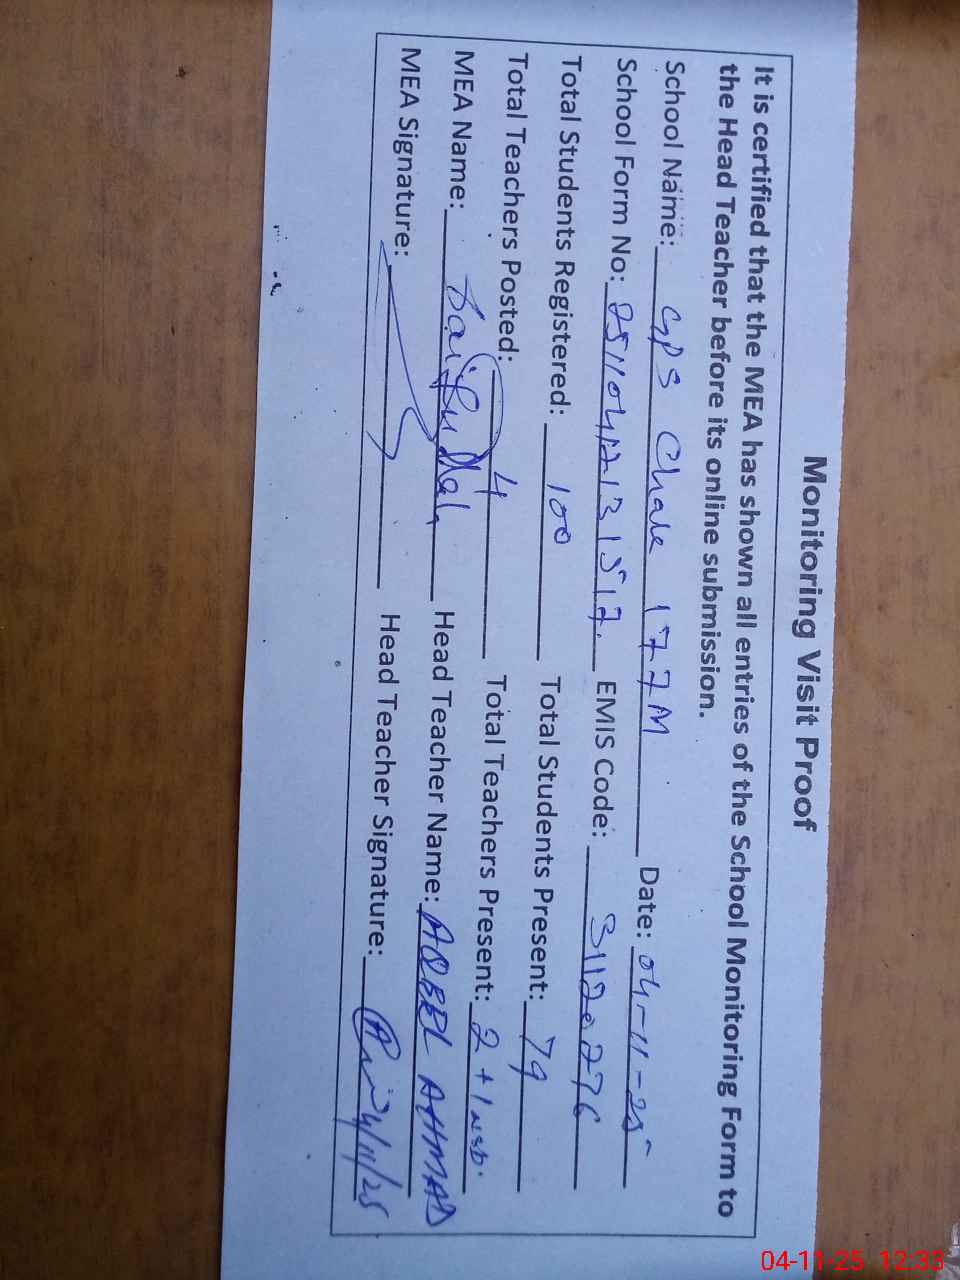 Monitoring Visit Proof
It is certified that the MEA has shown all entries of the School Monitoring Form to
the Head Teacher before its online submission.
School Name: GPS Chak 177M Date: 04-11-25
School Form No: EMIS Code: 31120276
Total Students Registered: 100 Total Students Present: 79
Total Teachers Posted: 4 Total Teachers Present: 2+1
MEA Name: Saifullah Head Teacher Name: AHMAD
MEA Signature: Head Teacher Signature: 4/11/25
04-11-25 12:33